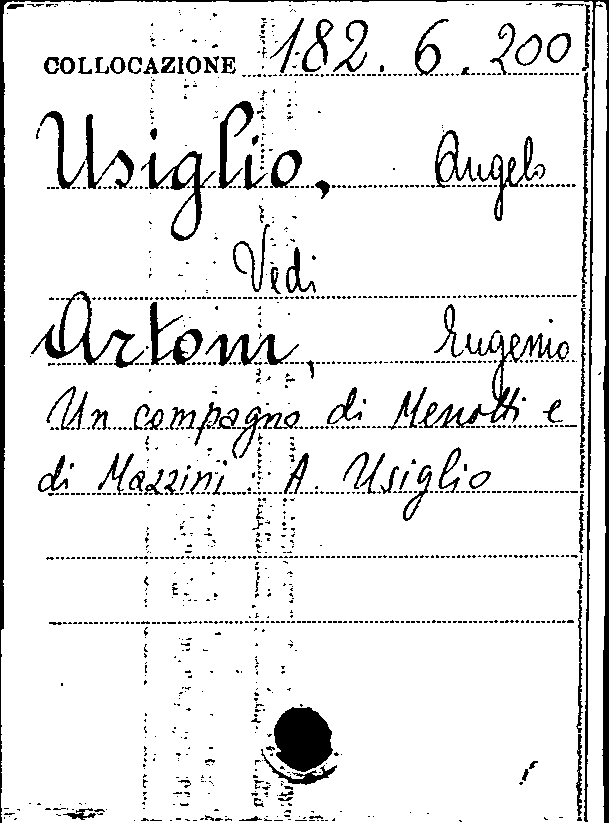 COLLOCAZIONE 182.6.200
Usiglio, Angelo
Vedi
Artom, Eugenio
Un compagno di Menotti e
di Mazzini. A. Usiglio